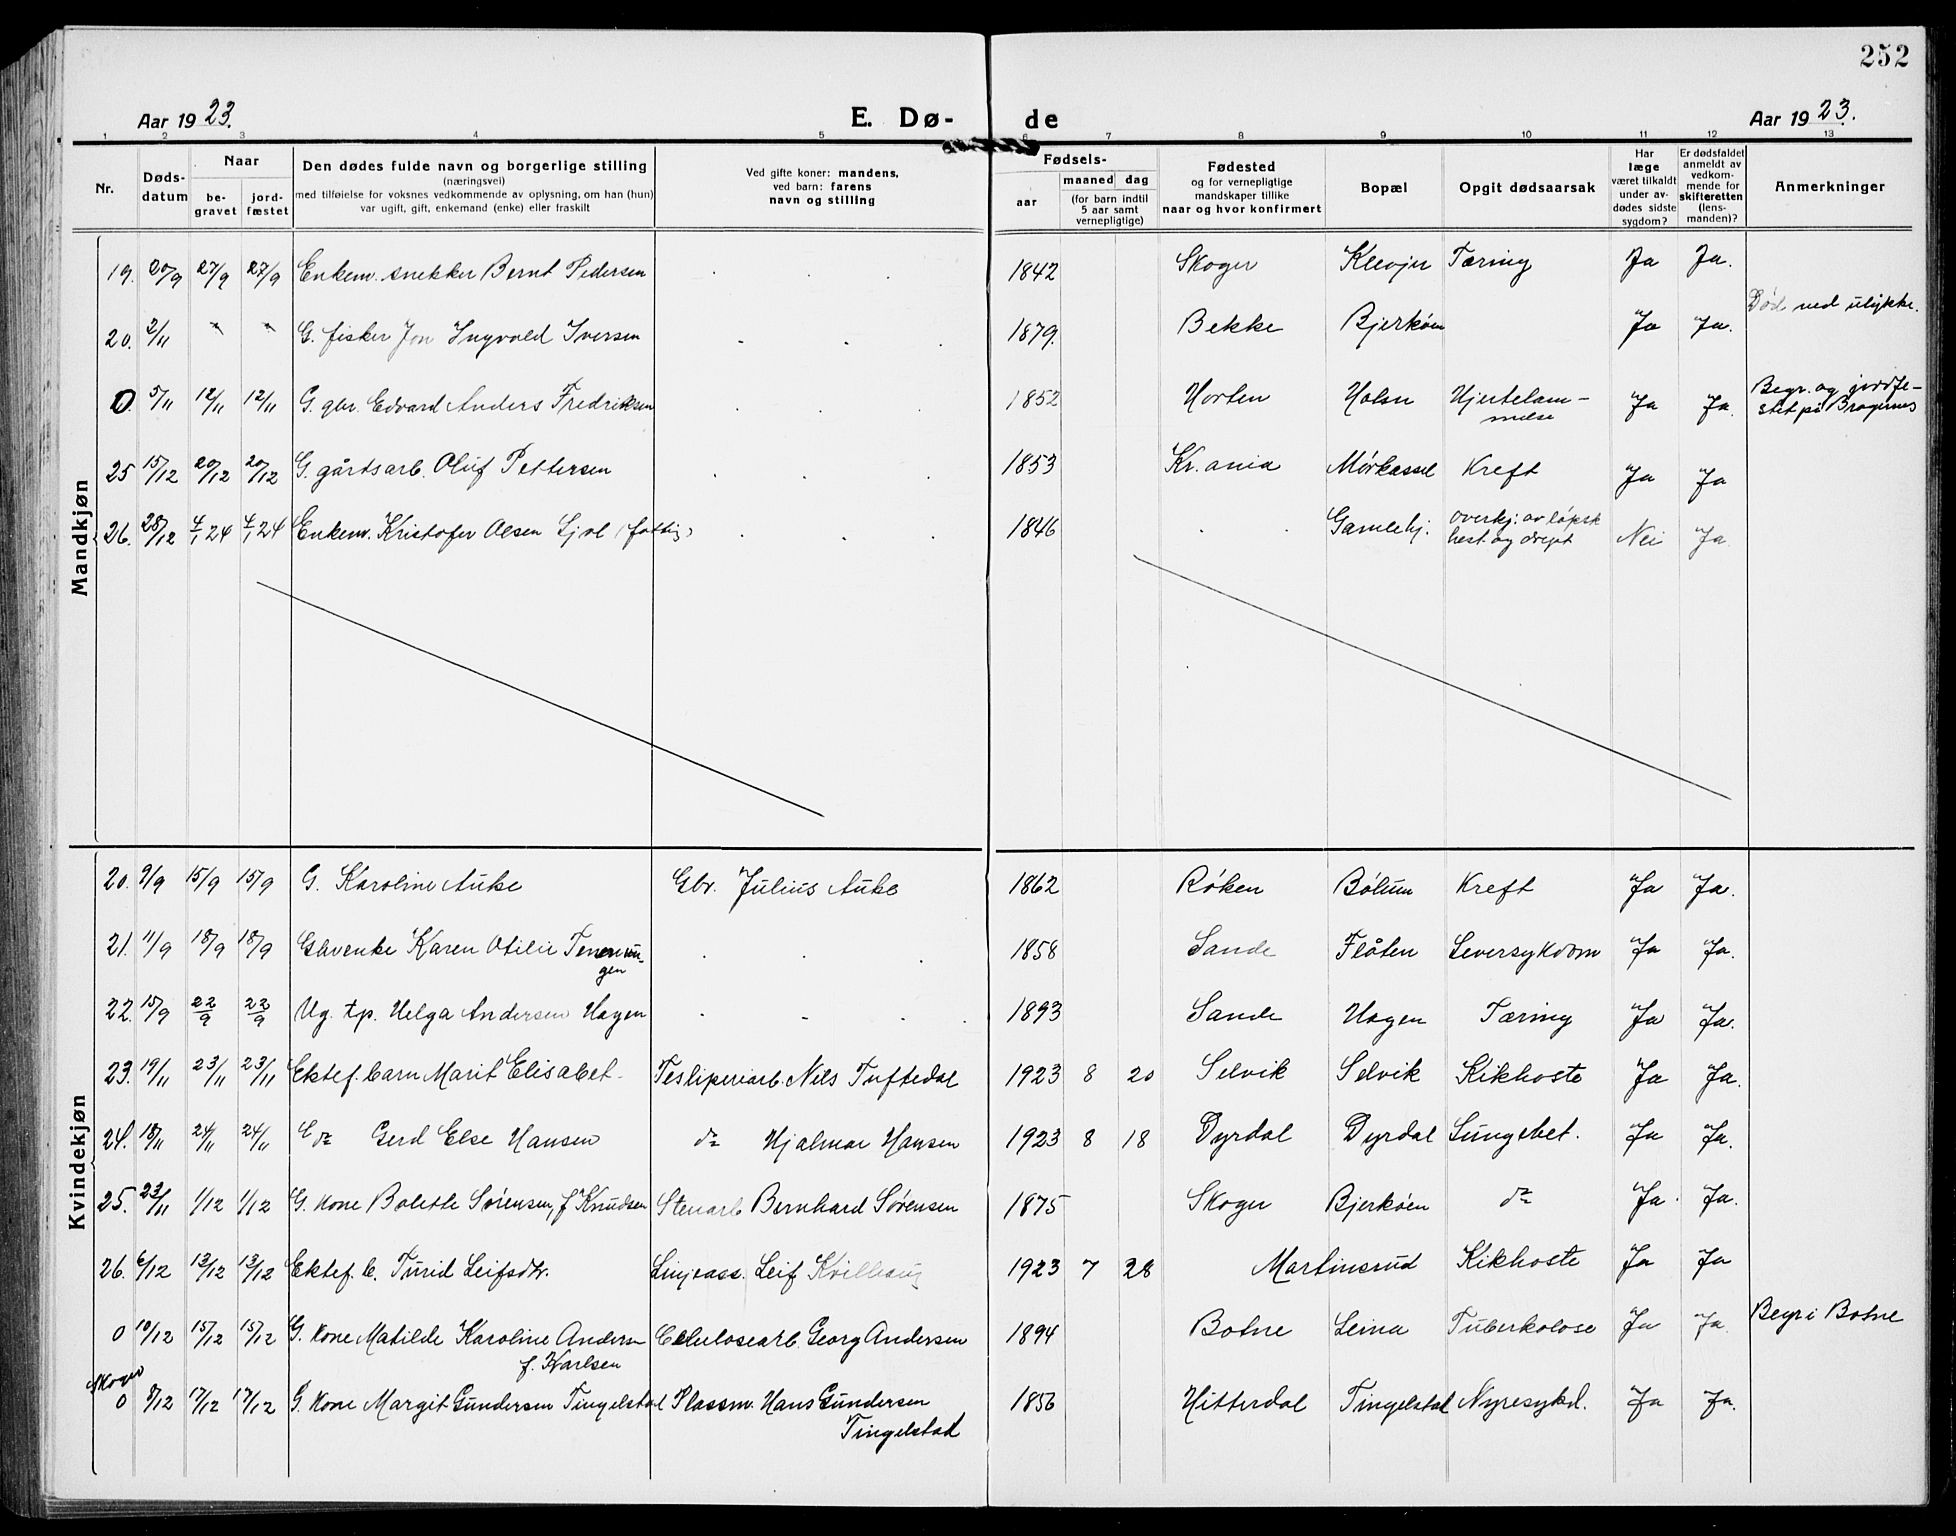 252
Aar 1923. E. Dø- de Aar 1923.
1 2 3 4 5 6 7 8 9 10 11 12 13
Nr. Døds-datum Naar be-gravet jord-fæstet Den dødes fulde navn og borgerlige stilling (næringsvei) med tilføielse for voksnes vedkommende av oplysning, om han (hun) var ugift, gift, enkemand (enke) eller fraskilt Ved gifte koner: mandens, ved barn: farens navn og stilling Fødsels- aar maaned dag (for barn indtil 5 aar samt vernepligtige) Fødested og for vernepligtige mandskaper tillike naar og hvor konfirmert Bopæl Opgit dødsaarsak Har læge været tilkaldt under av-dødes sidste sygdom? Er dødsfaldet anmeldt av vedkom-mende for skifteretten (lens-manden)? Anmerkninger
Mandkjøn
19. 20/9 27/9 27/9 Enkem. snekker Bernt Pedersen 1842 Skoger Klevjer Tæring Ja Ja.
20. 2/11 G. fisker Jon Ingvald Iversen 1879. Bekke Bjerkøen Ja Ja. Død ved ulykke.
0. 5/11 12/11 12/11 G. gbr. Edvard Anders Fredriksen 1852 Horten Holm Hjertelam-melse Ja Ja. Begr. og jordfe-stet på Bragernes
25 15/12 20/12 20/12 G. gårdsarb. Oluf Pettersen 1853 Kr.ania Mørkassel Kreft Ja Ja
26. 28/12 4/1 24 4/1 24 Enkem. Kristofer Olsen (fattig) 1846 Gamlehj. overkj. av løpsk hest og drept Nei Ja.
Kvindekjøn
20. 9/9 15/9 15/9 G. Karoline Auke Gbr. Julius Auke 1862 Røken Bølum Kreft Ja Ja.
21. 11/9 18/9 18/9 Gbvenke Karen Otilie 1858 Sande Flåten Leversykdom Ja Ja.
22. 15/9 22/9 22/9 Ug. tp. Helga Andersen Hagen 1893 Sande Hagen Tæring Ja Ja.
23. 19/11 23/11 23/11 Ektef. barn Marit Elisabet. Tresliperiarb. Nils Tuftedal 1923 8 20 Selvik Selvik Kikhoste Ja Ja.
24. 18/11 24/11 24/11 E do Gerd Else Hansen do Hjalmar Hansen 1923 8 18 Dyrdal Dyrdal Lungebet. Ja Ja.
25. 23/11 1/12 1/12 G. kone Bolette Sørensen, f Knudsen Stenarb Bernhard Sørensen 1875 Skoger Bjerkøen do Ja. Ja.
26. 6/12 13/12 13/12 Ektef. b. Turid Leifsdtr. Linjeass. Leif 1923 7 28 Martinsrud Kikhoste Ja Ja
0 10/12 15/12 15/12 G. kone Matilde Karoline Andersen Celulosearb. Georg Andersen 1894 Botne Leina Tuberkolose Ja Ja Begr i Botne
f. Karlsen
Skoger
0 9/12 17/12 17/12 G. kone Margit Gundersen Tingelstad Plassm. Hans Gundersen 1856 Hitterdal Tingelstad Nyresykd. Ja Ja.
Tingelstad